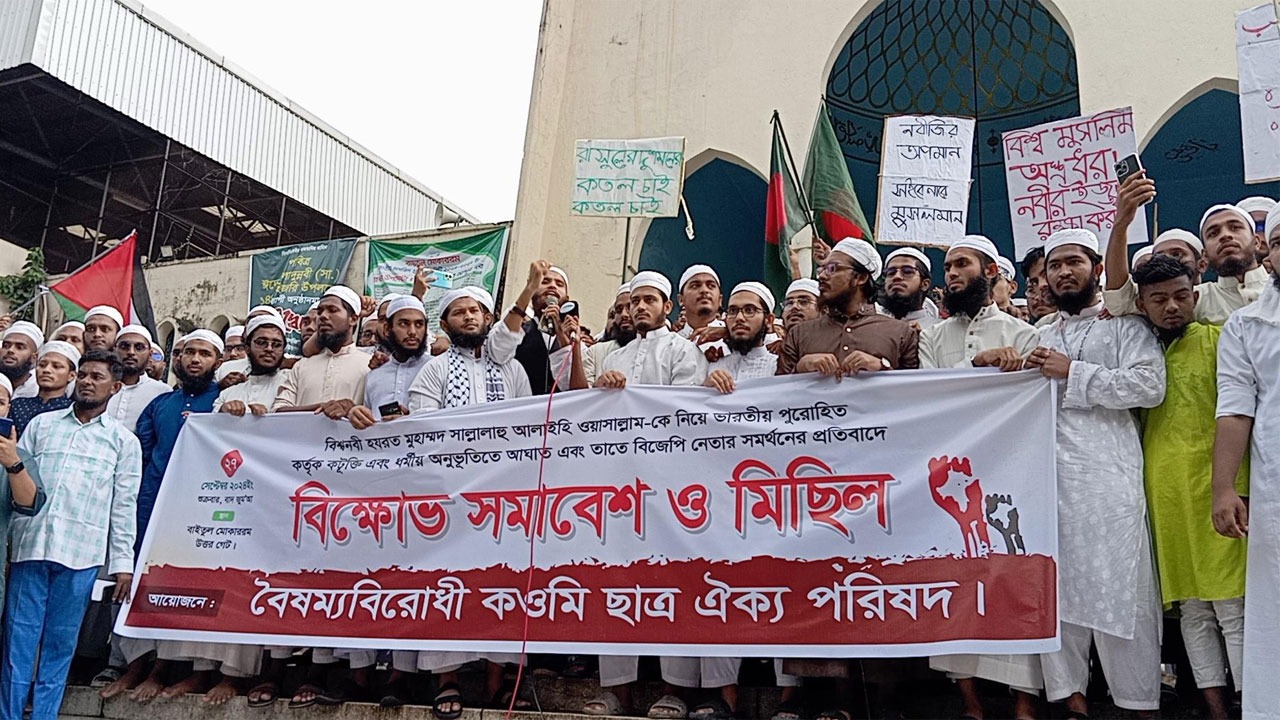 রাসুলের দুশমনের
কতল চাই
কতল চাই
নবীজির
অপমান
সইবে নারে
মুসলমান
বিশ্ব মুসলিম
অস্ত্র ধরো
নবীর ইজ্জত
রক্ষা কর
পবিত্র
বিশ্বনবী হযরত মুহাম্মদ সাল্লালাহু আলাইহি ওয়াসাল্লাম-কে নিয়ে ভারতীয় পুরোহিত
কর্তৃক কটূক্তি এবং ধর্মীয় অনুভূতিতে আঘাত এবং তাতে বিজেপি নেতার সমর্থনের প্রতিবাদে
২৭
সেপ্টেম্বর ২০২৪ইং
শুক্রবার, বাদ জুম'আ
স্থান
বাইতুল মোকাররম
উত্তর গেট।
বিক্ষোভ সমাবেশ ও মিছিল
আয়োজনে :
বৈষম্যবিরোধী কওমি ছাত্র ঐক্য পরিষদ।